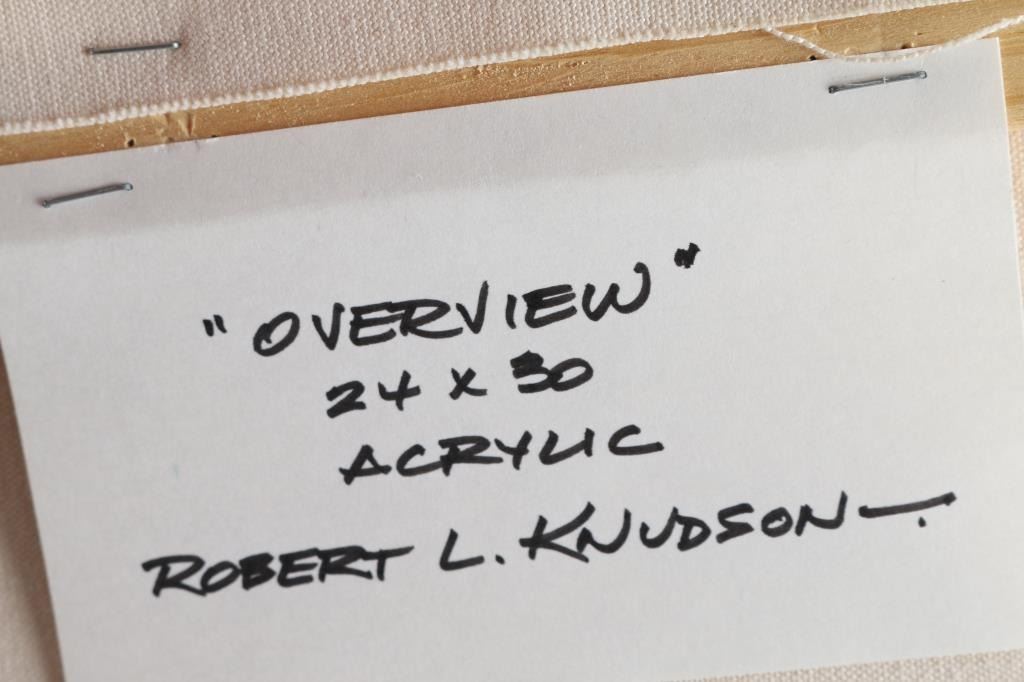 "OVERVIEW"
24 x 30
ACRYLIC
ROBERT L. KNUDSON